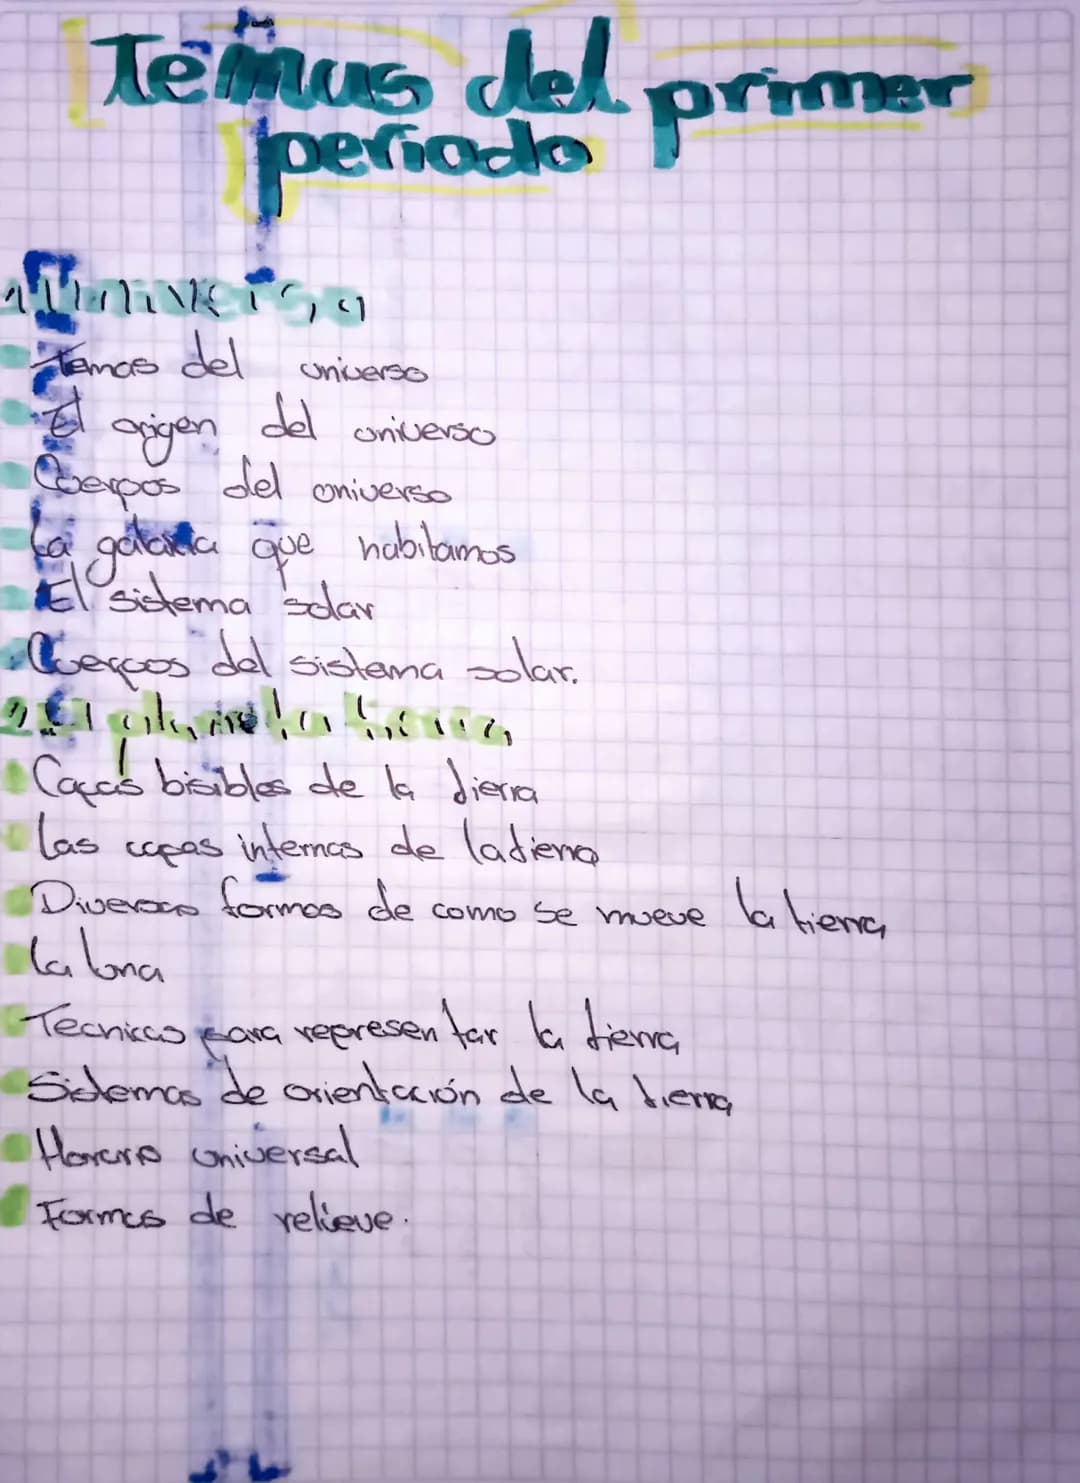 Temas del primer
periodo
1 Universo
Temas del universo
El origen del universo
Cuerpos del universo
La galaxia que habitamos
El sistema solar
Cuerpos del sistema solar.
2. El planeta tierra
Capas bisibles de la tierra
Las capas internas de la tierra
Diversas formas de como se mueve la tierra
La luna
Tecnicas para representar la tierra
Sistemas de orientación de la tierra
Horario universal
Formas de relieve.